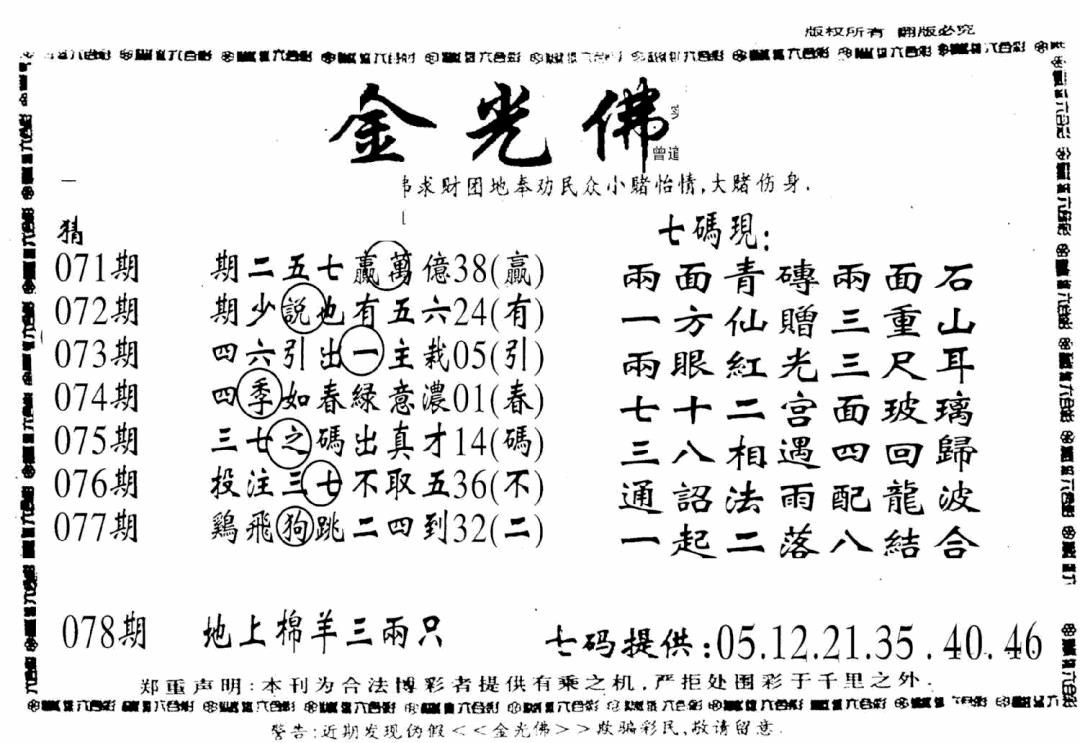 版权所有 翻版必究
金光佛
曾道
求财团地奉劝民众小赌怡情,大赌伤身.
猜
071期 期二五七贏萬億38(贏)
072期 期少説也有五六24(有)
073期 四六引出一主栽05(引)
074期 四季如春緑意濃01(春)
075期 三七之碼出真才14(碼)
076期 投注三七不取五36(不)
077期 鷄飛狗跳二四到32(二)
七碼現:
兩面青磚兩面石
一方仙贈三重山
兩眼紅光三尺耳
七十二宫面玻璃
三八相遇四回歸
通詔法雨配龍波
一起二落八結合
078期 地上棉羊三兩只
七码提供:05.12.21.35.40.46
郑重声明:本刊为合法博彩者提供有乘之机,严拒处围彩于千里之外.
警告:近期发现伪假<<金光佛>>欺骗彩民,敬请留意.